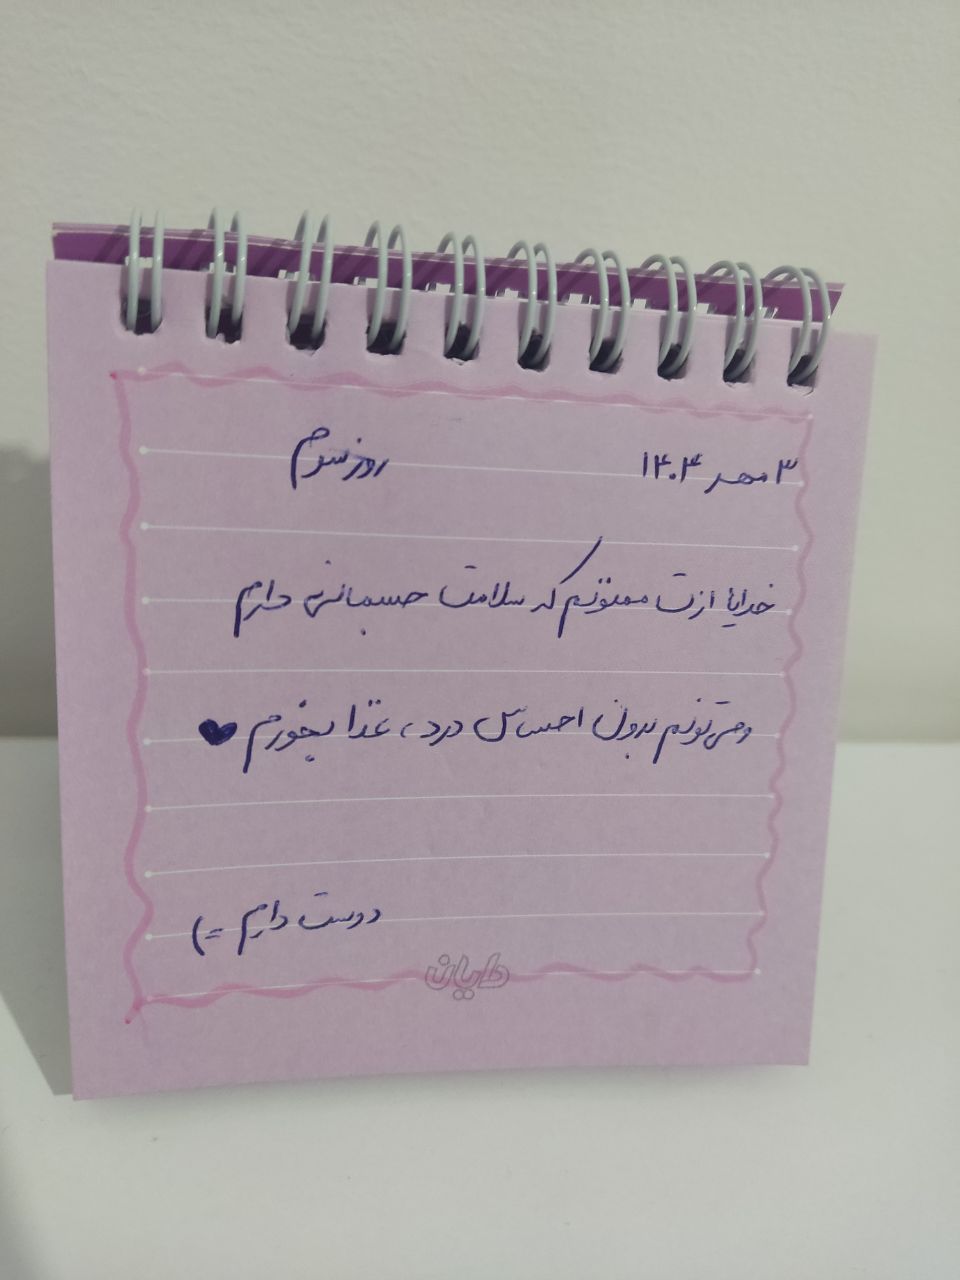 ۳ مهر ۱۴۰۴ روز سوم
خدایا ازت ممنونم که سلامت جسمانی دارم
و می‌تونم بدون احساس درد، غذا بخورم ♥
دوست دارم =)